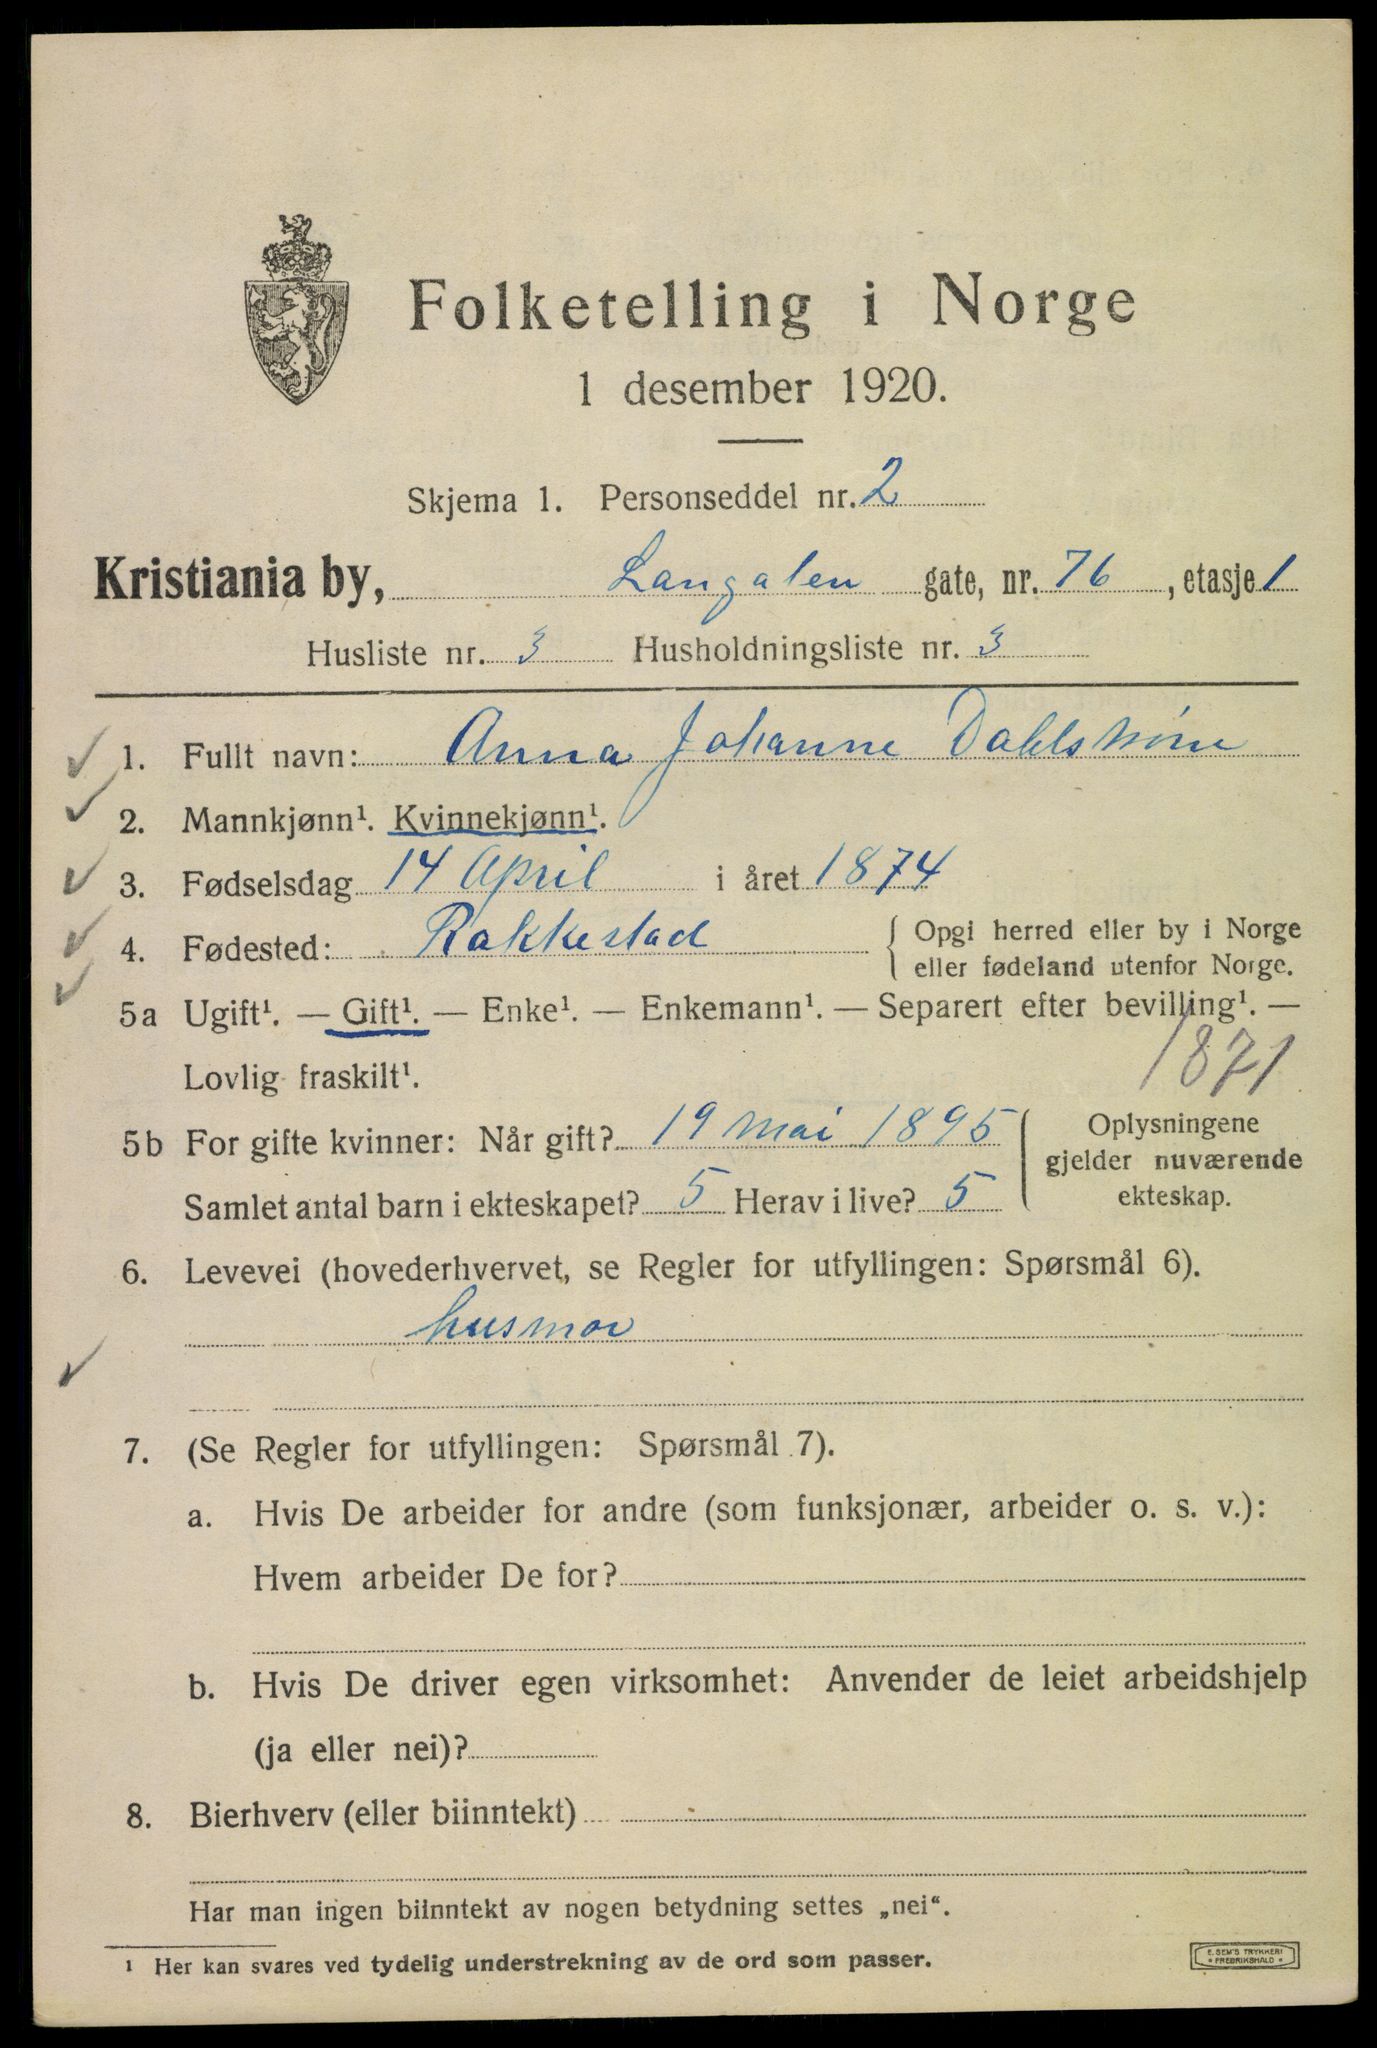 Folketelling i Norge
1 desember 1920.
Skjema 1. Personseddel nr. 2
Kristiania by, Langalen gate, nr. 76, etasje 1
Husliste nr. 3 Husholdningsliste nr. 3
1. Fullt navn: Anna Johanne Dahlstrøm
2. Mannkjønn¹. Kvinnekjønn¹.
3. Fødselsdag 14 April i året 1874
4. Fødested: Rakkestad { Opgi herred eller by i Norge
eller fødeland utenfor Norge.
5a Ugift¹. — Gift¹. — Enke¹. — Enkemann¹. — Separert efter bevilling¹. —
Lovlig fraskilt¹. 1871
5b For gifte kvinner: Når gift? 19 Mai 1895 Oplysningene
gjelder nuværende
Samlet antal barn i ekteskapet? 5 Herav i live? 5 ekteskap.
6. Levevei (hovederhvervet, se Regler for utfyllingen: Spørsmål 6).
husmor
7. (Se Regler for utfyllingen: Spørsmål 7).
a. Hvis De arbeider for andre (som funksjonær, arbeider o. s. v.):
Hvem arbeider De for?
b. Hvis De driver egen virksomhet: Anvender de leiet arbeidshjelp
(ja eller nei)?
8. Bierhverv (eller biinntekt)
Har man ingen biinntekt av nogen betydning settes „nei“.
¹ Her kan svares ved tydelig understrekning av de ord som passer.
E. SEM'S TRYKKERI
* FREDRIKSHALD *